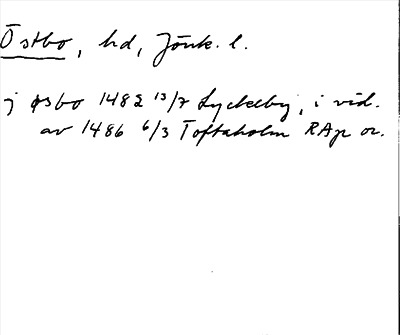 Östbo, hd, Jönk. l.
j øsbo 1482 13/7 Lyckeby, i vid.
av 1486 6/3 Toftaholm RAp or.